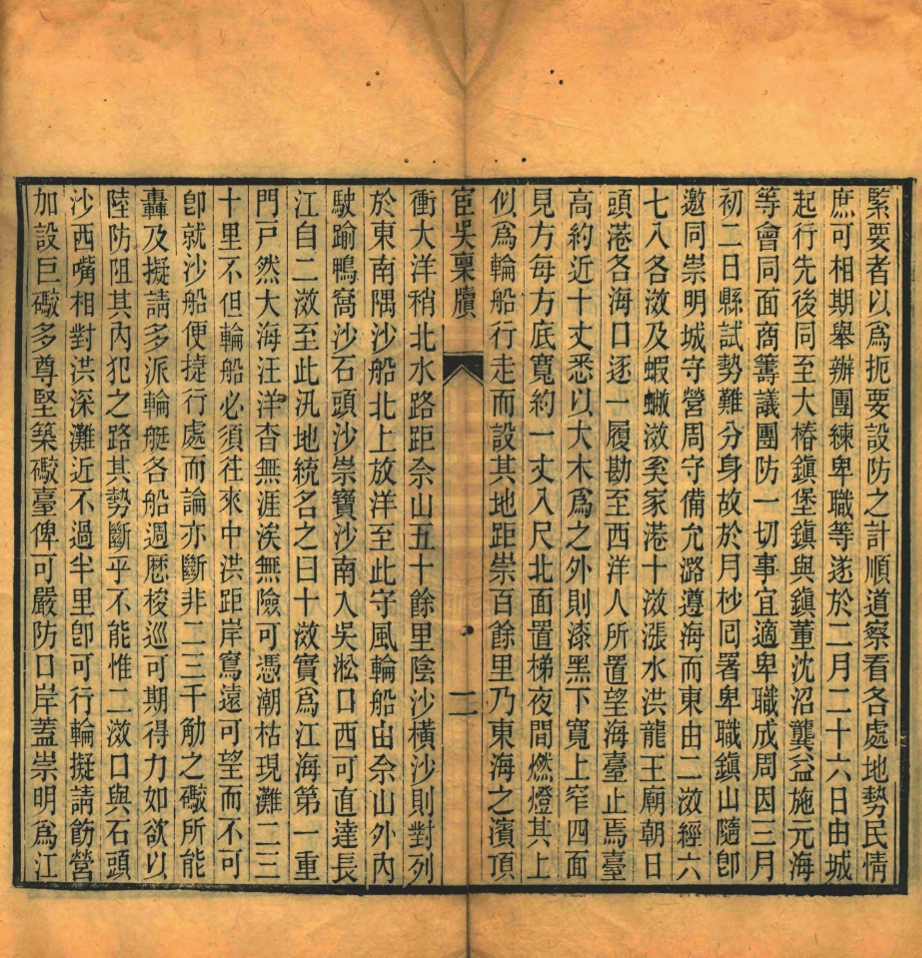 緊要者以爲扼要設防之計順道察看各處地勢民情
庶可相期舉辦團練卑職等遂於二月二十六日由城
起行先後同至大椿鎮堡鎮與鎮董沈沼龔益施元海
等會同面商籌議團防一切事宜適卑職成周因三月
初二日縣試勢難分身故於月杪囘署卑職鎮山隨卽
邀同崇明城守營周守備允潞遵海而東由二滧經六
七八各滧及蝦蠍滧奚家港十滧漲水洪龍王廟朝日
頭港各海口逐一履勘至西洋人所置望海臺止焉臺
高約近十丈悉以大木爲之外則漆黑下寬上窄四面
見方每方底寬約一丈入尺北面置梯夜間燃燈其上
似爲輪船行走而設其地距崇百餘里乃東海之濱頂
宦吳稟牘
二
衝大洋稍北水路距佘山五十餘里陰沙橫沙則對列
於東南隅沙船北上放洋至此守風輪船由佘山外內
駛踰鴨窩沙石頭沙崇寶沙南入吳淞口西可直達長
江自二滧至此汛地統名之曰十滧實爲江海第一重
門戸然大海汪洋杳無涯涘無險可憑潮枯現灘二三
十里不但輪船必須往來中洪距岸寫遠可望而不可
卽就沙船便捷行處而論亦斷非二三千觔之礮所能
轟及擬請多派輪艇各船週厯梭巡可期得力如欲以
陸防阻其內犯之路其勢斷乎不能惟二滧口與石頭
沙西嘴相對洪深灘近不過半里卽可行輪擬請飭營
加設巨礮多尊堅築礮臺俾可嚴防口岸蓋崇明爲江